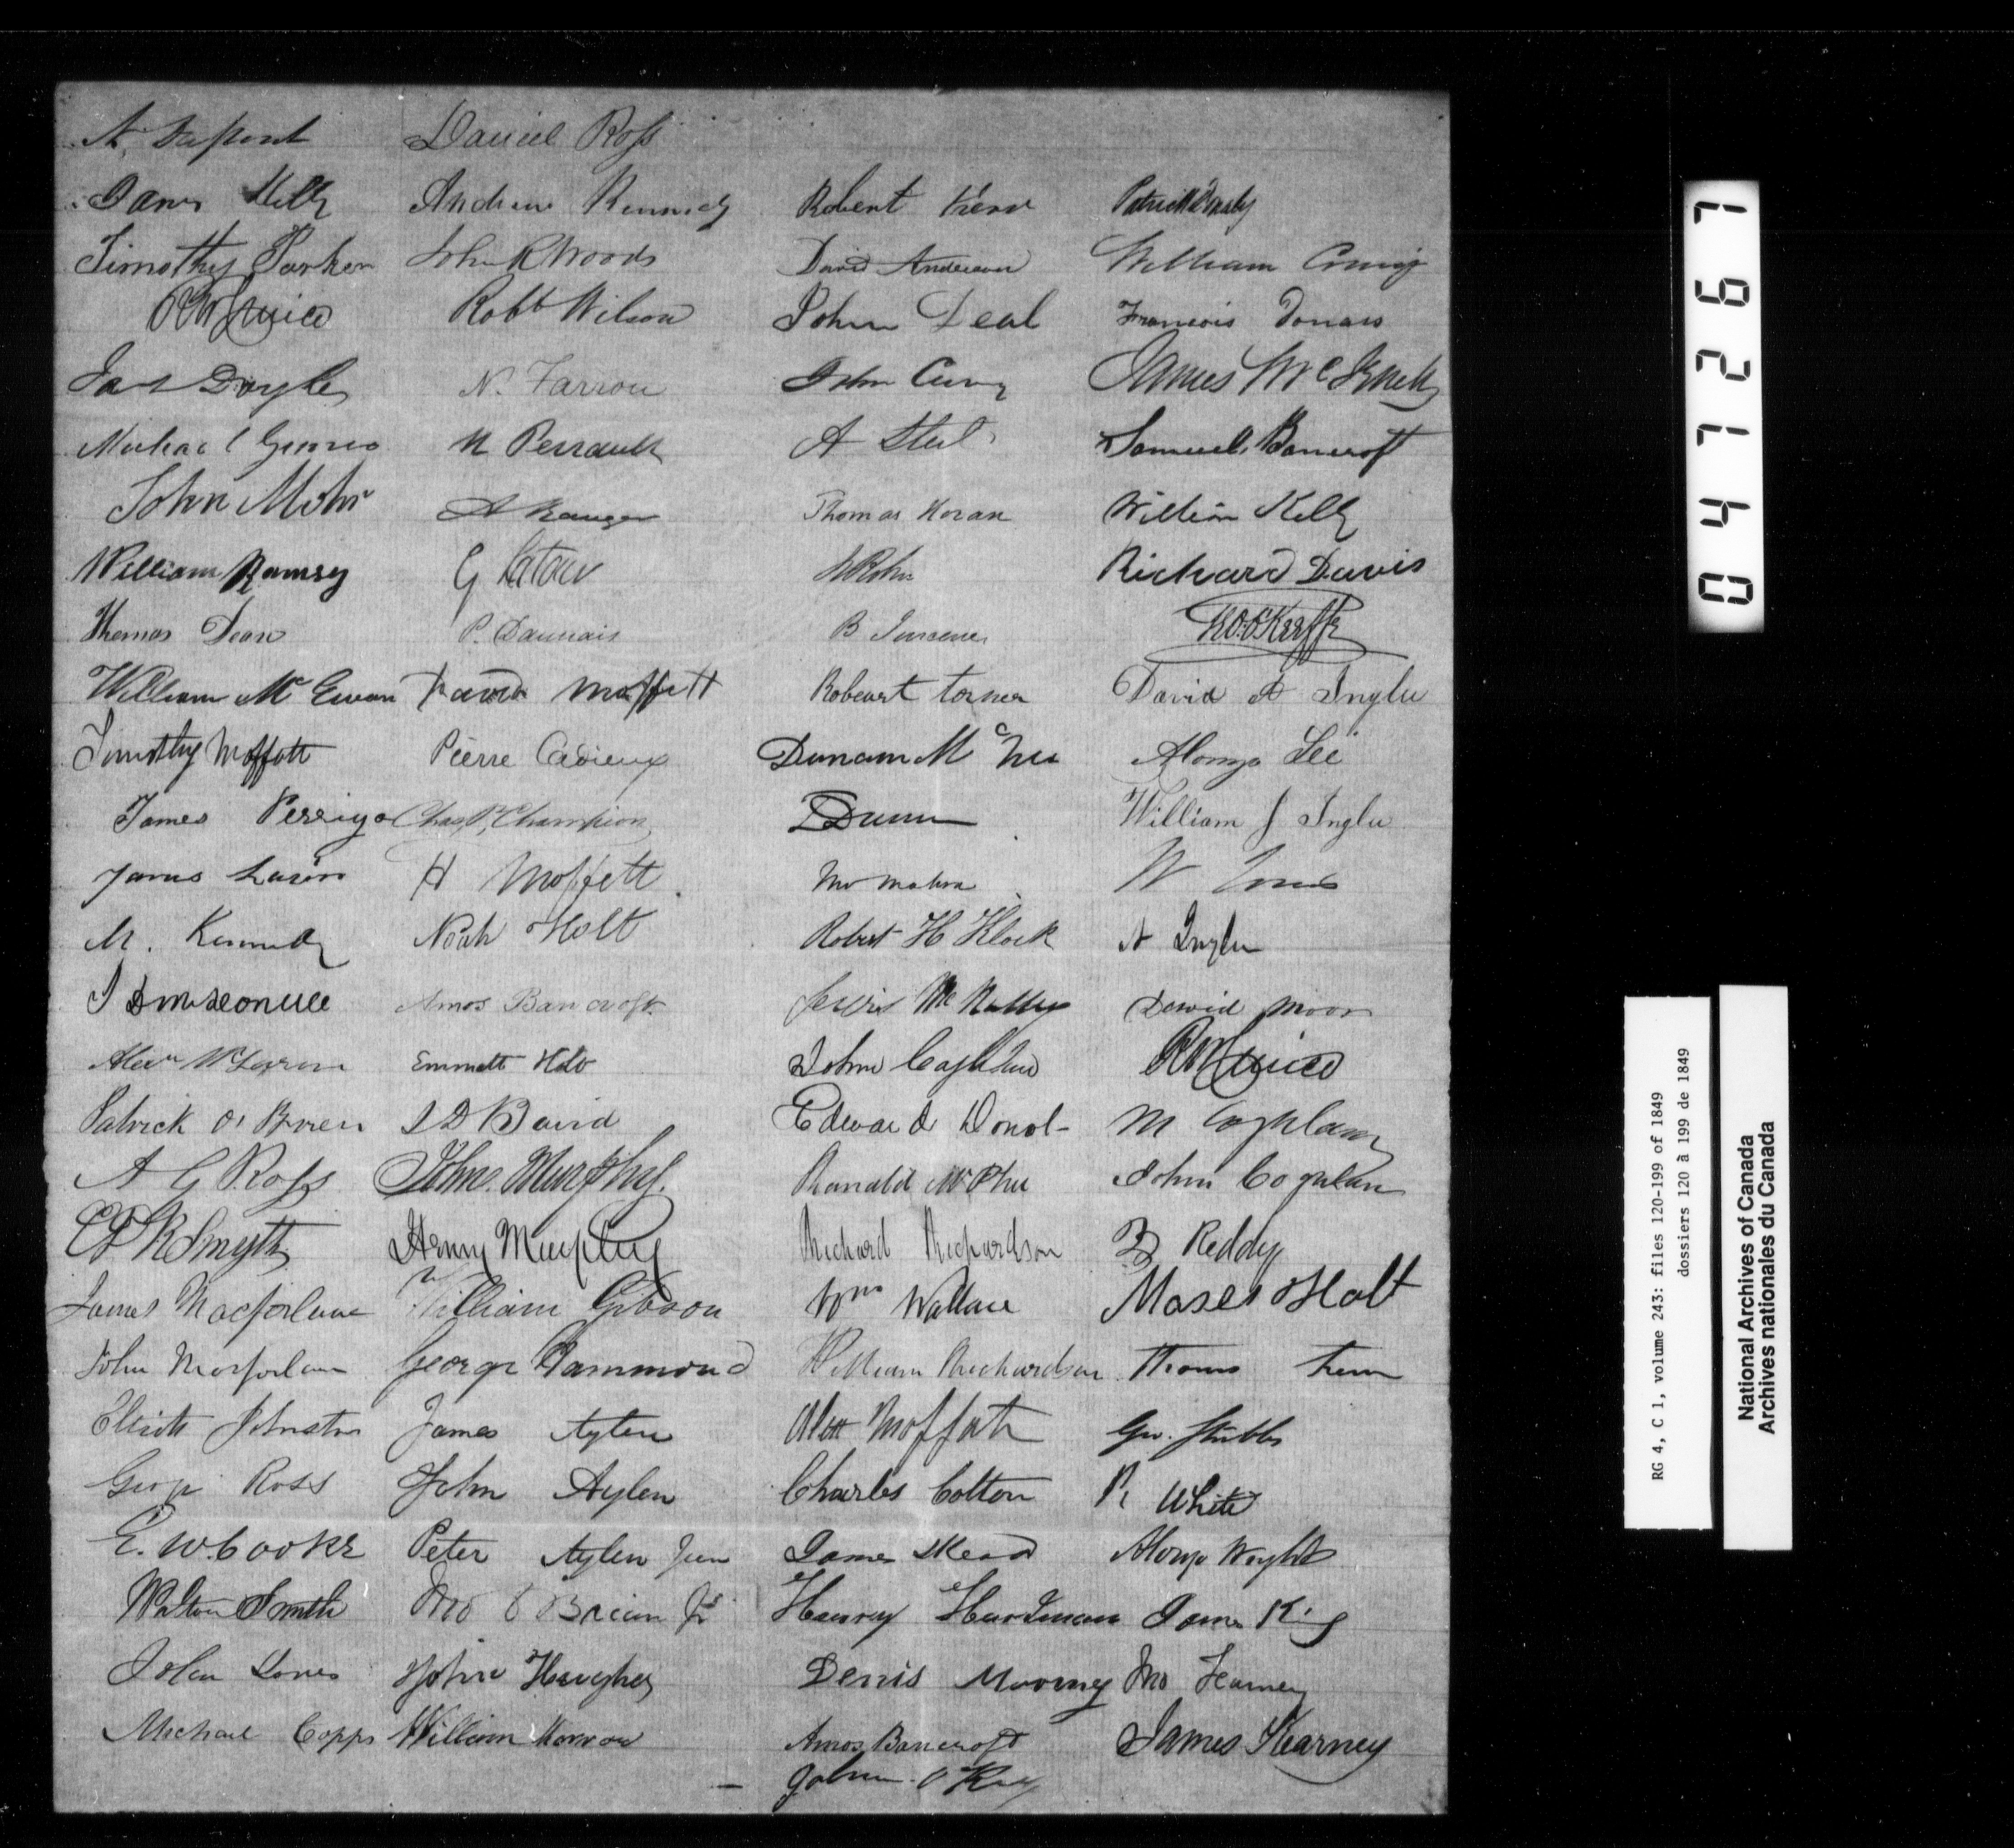 A. Dupont Daniel Ross
James Kelly Andrew Kennedy Robert Patrick
Timothy Parker John R Woods David Anderson William Craig
Robt Wilson John Deal Francois
Jas Doyle N. Farrow John James Mc
Michael N Perrault A Steel Samuel Bancroft
John Mohr A Ranger Thomas Horan William Kelly
William Ramsy G Richard Davis
Thomas Dean P. Daunais B
William Mc Ewan David Moffett Robeart torner David A Inglee
Timothy Moffatt Pierre Cadieux Duncan Mc William Alonzo Lee
James Perrigo Chas P. Champion Dunn William J Inglee
James H Moffett W
M. Kennedy Noah Holt Robert H Klock A Inglee
Amos Bancroft Lewis Mc David moor
Alexr Emmett Holt John Coghlan
Patrick O'Brien J D Baird Edward M Coghlan
A G Ross John Murphy. Ranald McPhee John Coghlan
Smyth Henry Murphy Richard Richardson Reddy
James Macfarlane William Gibson Wm Wallace Moses Holt
John Macfarlane George Hammond William Richardson Thomas
Elliott Johnston James Aylen Alex Moffatt Geo. Stubbs
George Ross John Aylen Charles Colton R White
E. W. Cooke Peter Aylen Jun James Skead Alonzo Wright
Walton Smith Jno O Brian Jr Henry Hardman James King
John Jones John Haughey Denis Moorney Jno Kearney
Michael Copps William Morrow Amos Bancroft James Kearney
John O
041267
RG 4, C 1, volume 243: files 120-199 of 1849
dossiers 120 à 199 de 1849
National Archives of Canada
Archives nationales du Canada